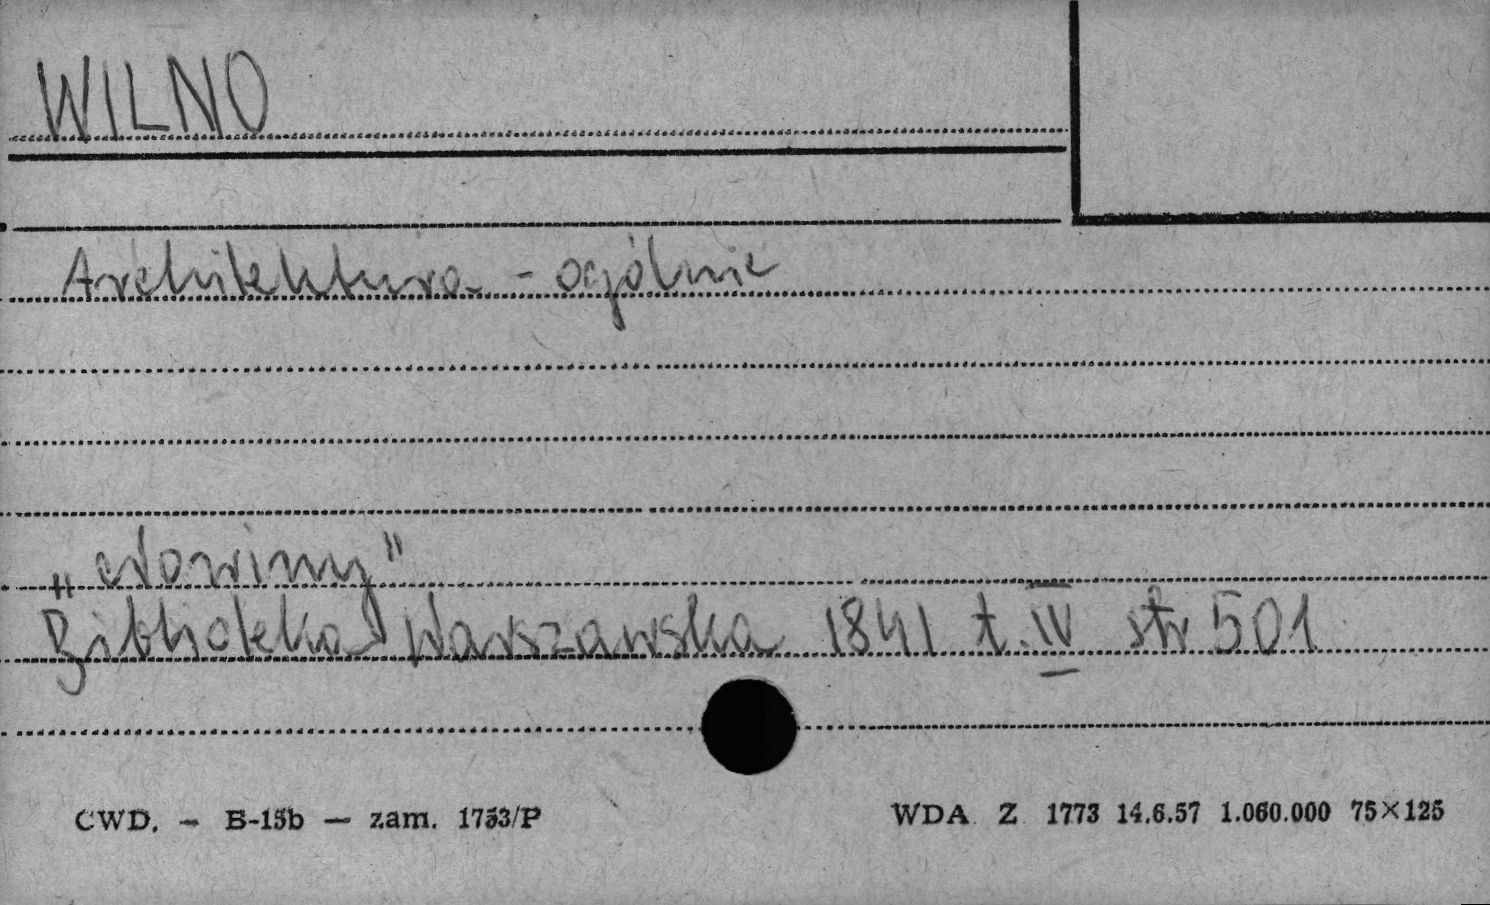 WILNO
Architektura - ogólnie
„Nowiny"
Biblioteka Warszawska 1841 t. IV str 501
CWD. — B-15b — zam. 1753/P
WDA Z 1773 14.6.57 1.060.000 75×125